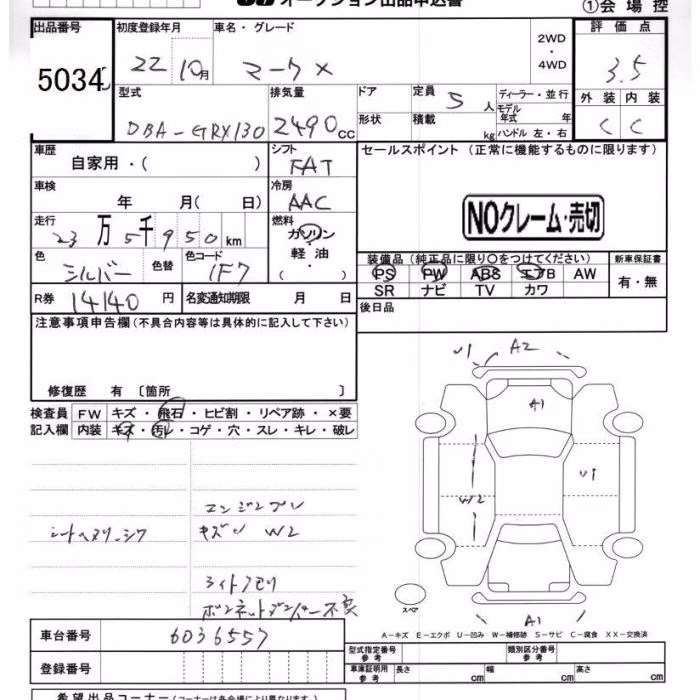 オークション出品申込書 ①会場控
出品番号 初度登録年月 車名・グレード 2WD・4WD 評価点
5034 22 10月 マークX 3.5
型式 排気量 ドア 定員 5人 ディーラー・並行 外装 内装
DBA-GRX130 2490cc 形状 積載 kg モデル年式 年 ハンドル 左・右 C C
車歴 自家用・( ) シフト FAT セールスポイント (正常に機能するものに限ります)
車検 年 月( 日) 冷房 AAC
NOクレーム・売切
走行 23万5千950km 燃料 ガソリン 軽油 ・( )
色 シルバー 色替 色コード 1F7
装備品 (純正品に限り○をつけてください) 新車保証書
PS PW ABS エアB AW 有・無
SR ナビ TV カワ
R券 14140円 名変通知期限 月 日
後日品
注意事項申告欄(不具合内容等は具体的に記入して下さい)
修復歴 有 〔箇所 〕
検査員 FW キズ・飛石・ヒビ割・リペア跡・×要
記入欄 内装 キズ・汚レ・コゲ・穴・スレ・キレ・破レ
U1 A2
A1
U1
W2
エンジンブレ
シートヘタリ、シワ キズ、W2
ライトクモリ
ボンネットダンパー不良
スペア
A1
A-キズ E-エクボ U-凹み W-補修跡 S-サビ C-腐食 XX-交換済
車台番号 6036557
型式指定番号 参考 類別区分番号 参考
登録番号
車庫証明用 参考 長さ cm 幅 cm 高さ cm
希望出品コーナー(コーナーは各会場により異なります)